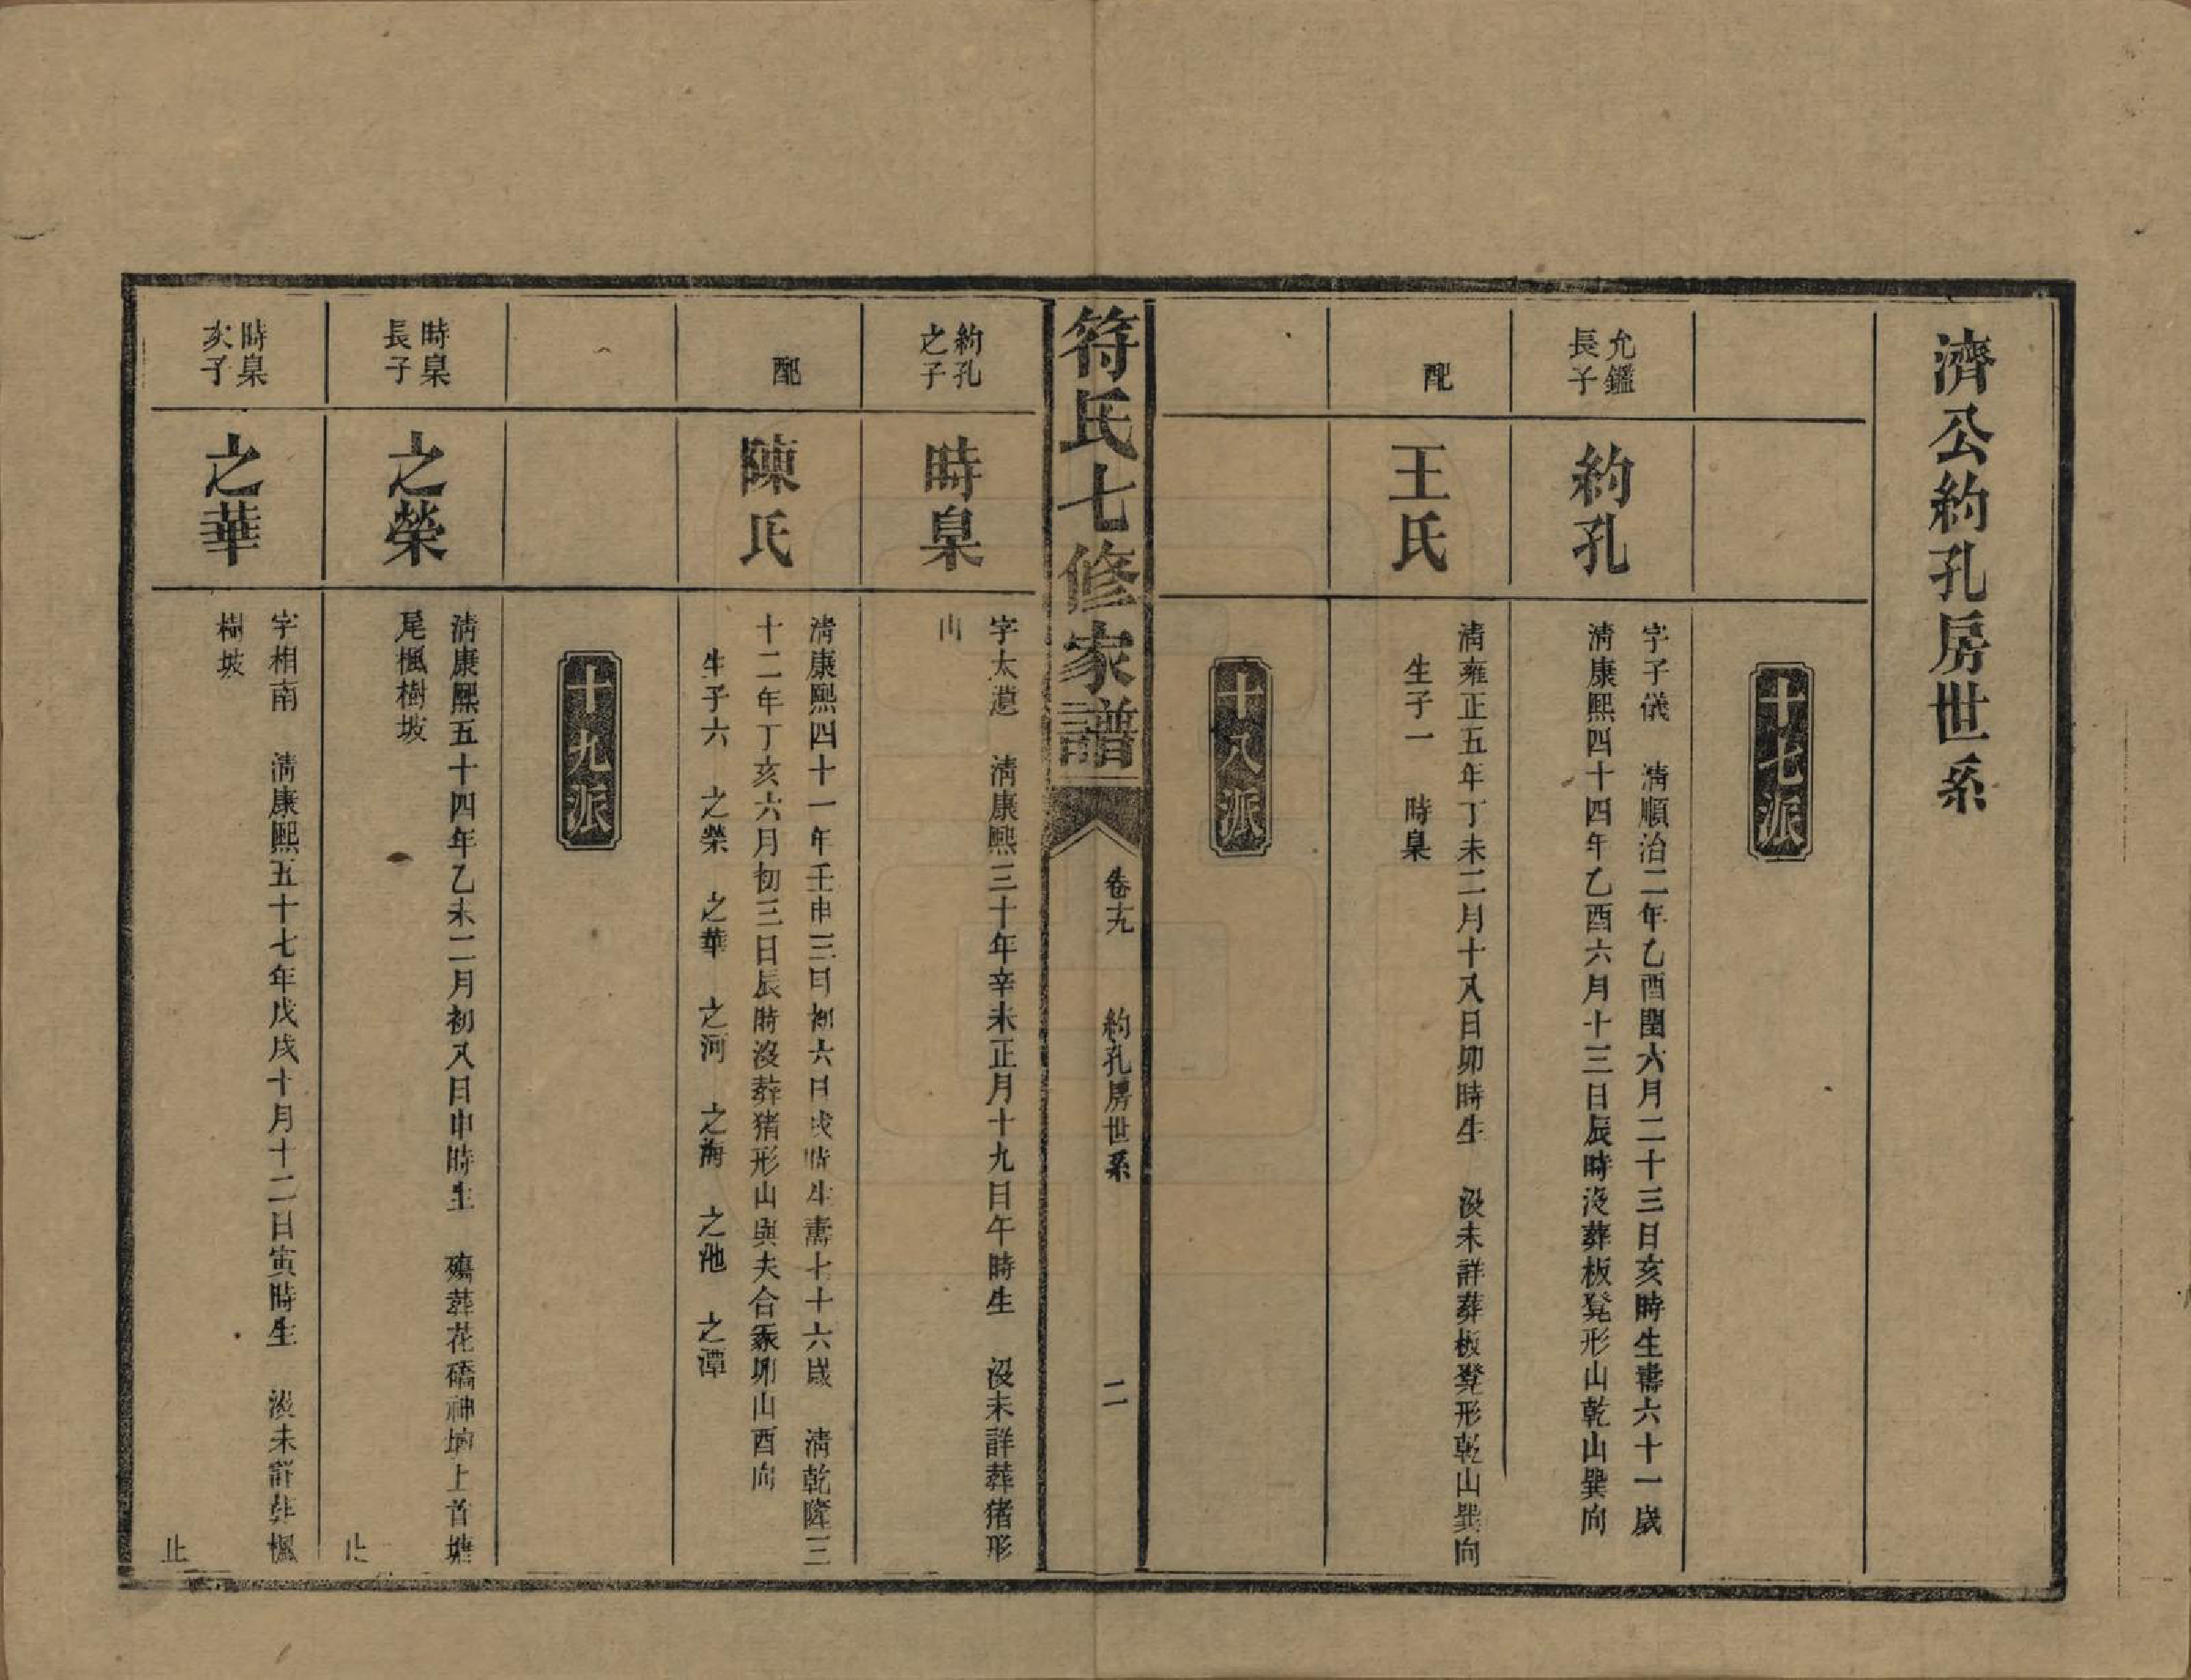 濟公約孔房世系
十七派
允鑑
長子
約孔
字子儀　清順治二年乙酉閏六月二十三日亥時生壽六十一歲
清康熙四十四年乙酉六月十三日辰時沒葬板凳形山乾山巽向
配
王氏
清雍正五年丁未二月十八日卯時生　沒未詳葬板凳形乾山巽向
生子一　時臯
十八派
符氏七修家譜
卷十九
約孔房世系
二
約孔
之子
時臯
字太　清康熙三十年辛未正月十九日午時生　沒未詳葬猪形
山
配
陳氏
清康熙四十一年壬申三月初六日戌時生壽七十六歲　清乾隆三
十二年丁亥六月初三日辰時沒葬猪形山與夫合冢卯山酉向
生子六　之榮　之華　之河　之海　之池　之潭
十九派
時臯
長子
之榮
清康熙五十四年乙未二月初八日申時生　殤葬花礄神坳上首塘
尾楓樹坡
止
時臯
次子
之華
字相南　清康熙五十七年戊戌十月十二日寅時生　沒未詳葬楓
樹坡
止